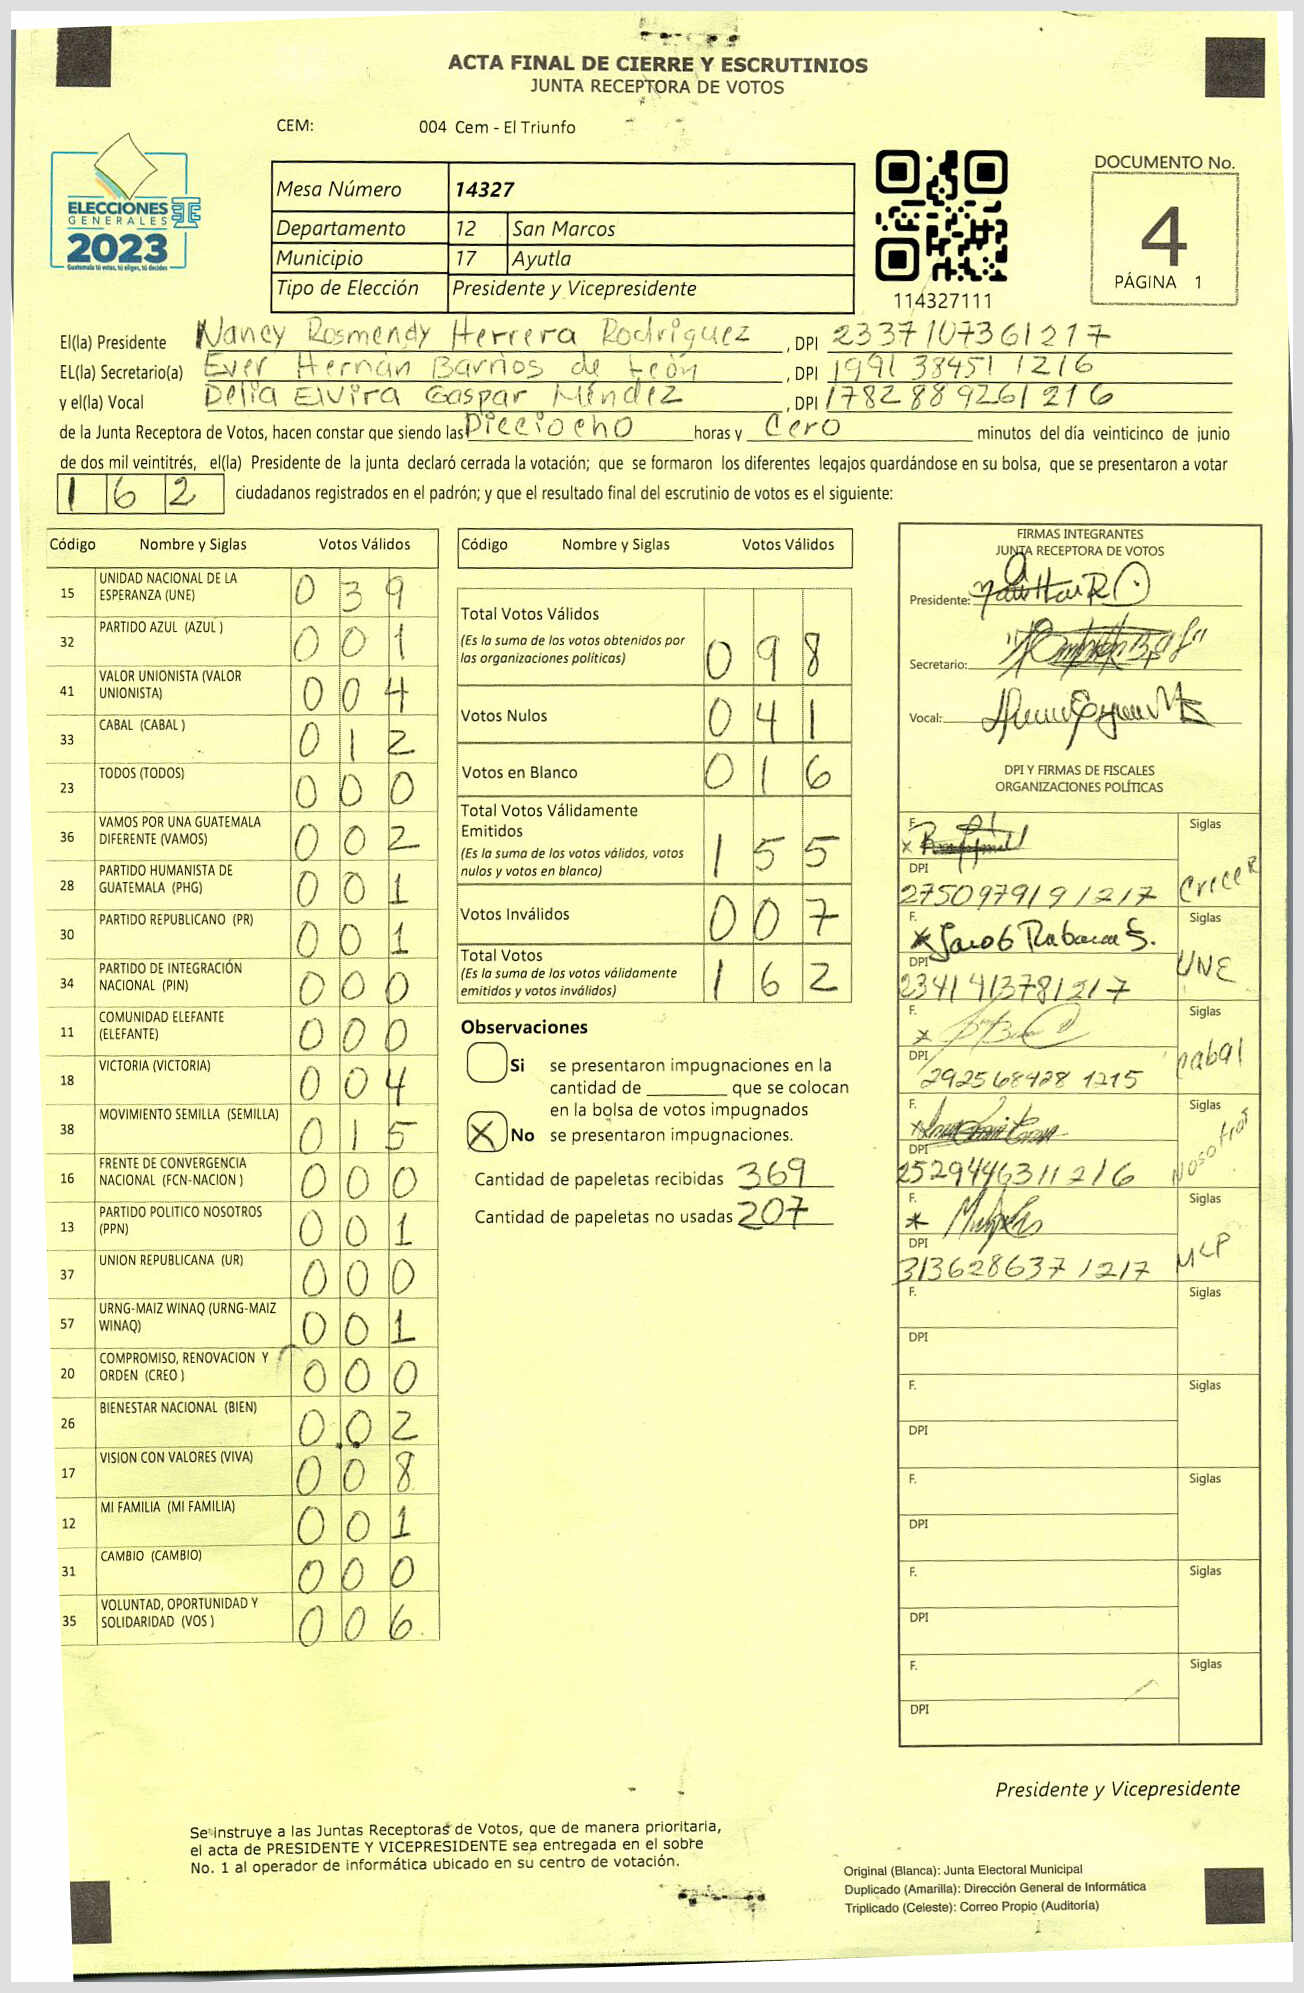 ACTA FINAL DE CIERRE Y ESCRUTINIOS
JUNTA RECEPTORA DE VOTOS
CEM: 004 Cem - El Triunfo
ELECCIONES
GENERALES
2023
Guatemala tú votas, tú eliges, tú decides
Mesa Número 14327
Departamento 12 San Marcos
Municipio 17 Ayutla
Tipo de Elección Presidente y Vicepresidente
114327111
DOCUMENTO No.
4
PÁGINA 1
El(la) Presidente Nancy Rosmendy Herrera Rodriguez , DPI 2337107361217
EL(la) Secretario(a) Ever Hernán Barrios de León , DPI 1991384511216
y el(la) Vocal Delia Elvira Gaspar Méndez , DPI 1782889261216
de la Junta Receptora de Votos, hacen constar que siendo las Dieciocho horas y Cero minutos del día veinticinco de junio
de dos mil veintitrés, el(la) Presidente de la junta declaró cerrada la votación; que se formaron los diferentes legajos guardándose en su bolsa, que se presentaron a votar
162 ciudadanos registrados en el padrón; y que el resultado final del escrutinio de votos es el siguiente:
Código Nombre y Siglas Votos Válidos
15 UNIDAD NACIONAL DE LA ESPERANZA (UNE) 039
32 PARTIDO AZUL (AZUL ) 001
41 VALOR UNIONISTA (VALOR UNIONISTA) 004
33 CABAL (CABAL ) 012
23 TODOS (TODOS) 000
36 VAMOS POR UNA GUATEMALA DIFERENTE (VAMOS) 002
28 PARTIDO HUMANISTA DE GUATEMALA (PHG) 001
30 PARTIDO REPUBLICANO (PR) 001
34 PARTIDO DE INTEGRACIÓN NACIONAL (PIN) 000
11 COMUNIDAD ELEFANTE (ELEFANTE) 000
18 VICTORIA (VICTORIA) 004
38 MOVIMIENTO SEMILLA (SEMILLA) 015
16 FRENTE DE CONVERGENCIA NACIONAL (FCN-NACION ) 000
13 PARTIDO POLITICO NOSOTROS (PPN) 001
37 UNION REPUBLICANA (UR) 000
57 URNG-MAIZ WINAQ (URNG-MAIZ WINAQ) 001
20 COMPROMISO, RENOVACION Y ORDEN (CREO ) 000
26 BIENESTAR NACIONAL (BIEN) 002
17 VISION CON VALORES (VIVA) 008
12 MI FAMILIA (MI FAMILIA) 001
31 CAMBIO (CAMBIO) 000
35 VOLUNTAD, OPORTUNIDAD Y SOLIDARIDAD (VOS ) 006
Código Nombre y Siglas Votos Válidos
Total Votos Válidos 098
(Es la suma de los votos obtenidos por
las organizaciones políticas)
Votos Nulos 041
Votos en Blanco 016
Total Votos Válidamente
Emitidos 155
(Es la suma de los votos válidos, votos
nulos y votos en blanco)
Votos Inválidos 007
Total Votos 162
(Es la suma de los votos válidamente
emitidos y votos inválidos)
Observaciones
Si se presentaron impugnaciones en la
cantidad de ________ que se colocan
en la bolsa de votos impugnados
X No se presentaron impugnaciones.
Cantidad de papeletas recibidas 369
Cantidad de papeletas no usadas 207
FIRMAS INTEGRANTES
JUNTA RECEPTORA DE VOTOS
Presidente:
Secretario:
Vocal:
DPI Y FIRMAS DE FISCALES
ORGANIZACIONES POLÍTICAS
F. Siglas
DPI Creer
2750979191217
F. Siglas
DPI UNE
2341413781217
F. Siglas
DPI cabal
2925684281215
F. Siglas
DPI Nosotros
2529446311216
F. Siglas
DPI MLP
3136286371217
F. Siglas
DPI
F. Siglas
DPI
F. Siglas
DPI
F. Siglas
DPI
F. Siglas
DPI
Presidente y Vicepresidente
Se instruye a las Juntas Receptoras de Votos, que de manera prioritaria,
el acta de PRESIDENTE Y VICEPRESIDENTE sea entregada en el sobre
No. 1 al operador de informática ubicado en su centro de votación.
Original (Blanca): Junta Electoral Municipal
Duplicado (Amarilla): Dirección General de Informática
Triplicado (Celeste): Correo Propio (Auditoría)